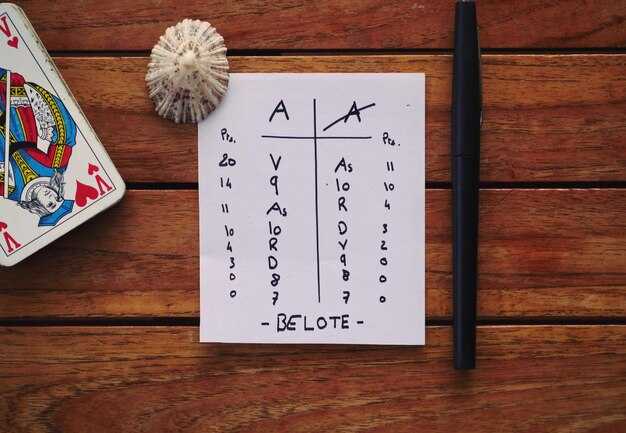 V
V
A A
Pts. Pts.
20 V As 11
14 9 10 10
11 As R 4
10 10 D 3
4 R V 2
3 D 9 0
0 8 8 0
0 7 7 0
- BELOTE -